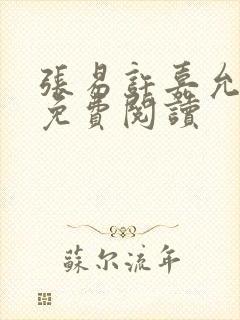 張易許嘉允
免費閱讀
蘇尔流年